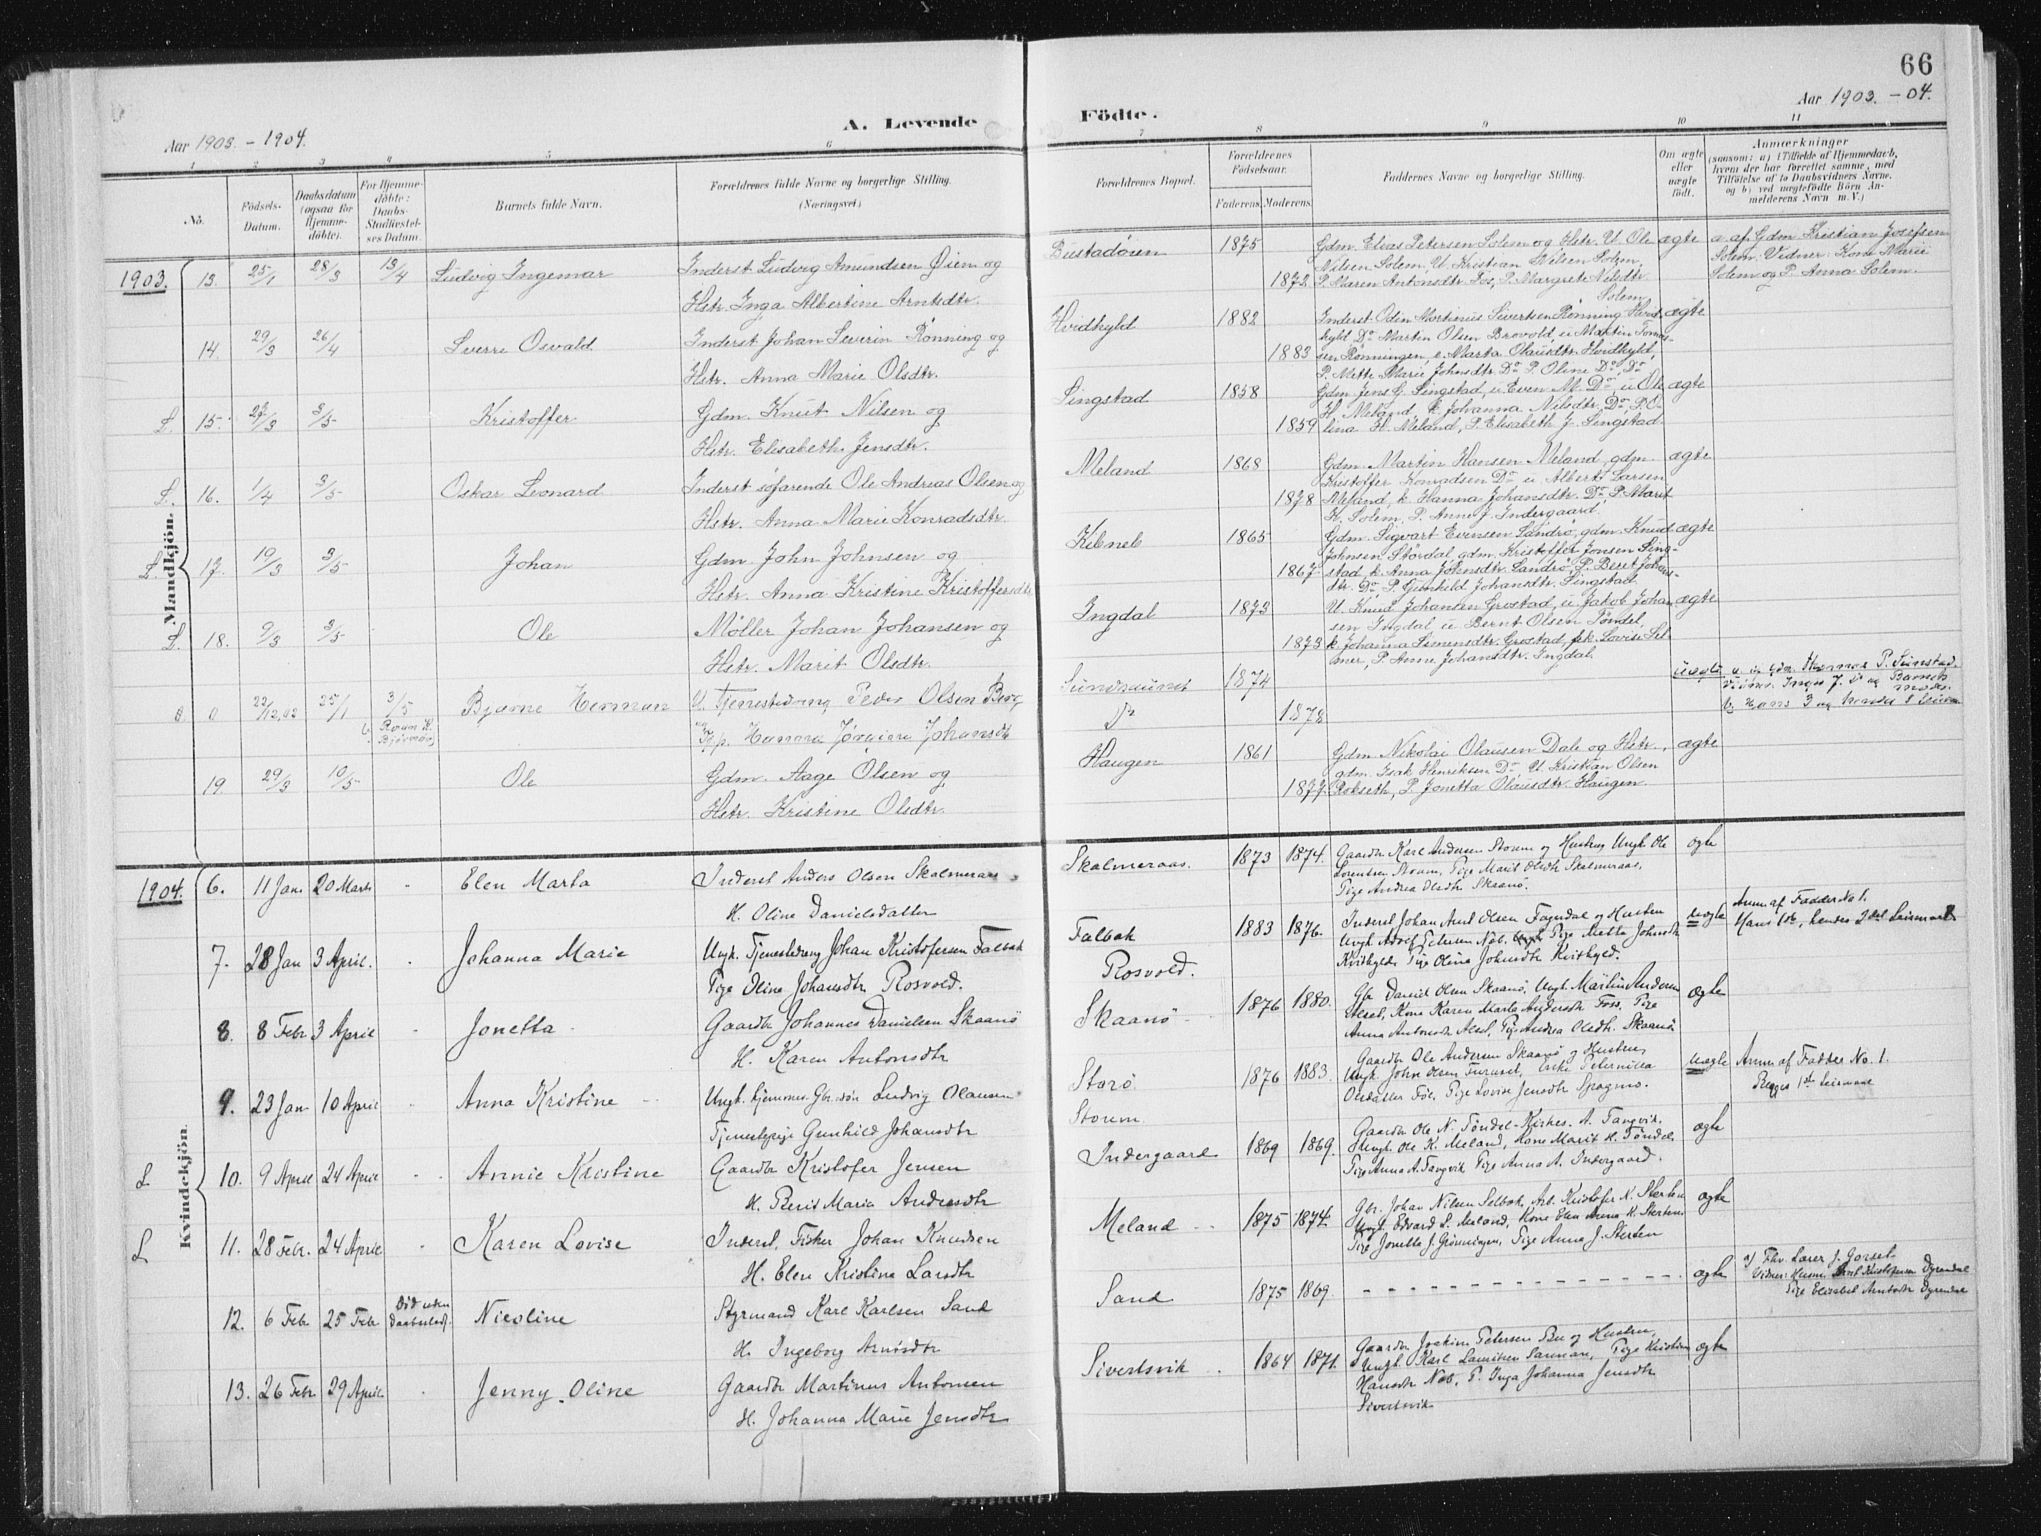 66
Aar 1903. - 1904.
A. Levende
Födte.
Aar 1903. - 04.
1 2 3 4 5 6 7 8 9 10 11
No.
Födsels-Datum.
Daabsdatum (ogsaa for Hjemme-döbte).
For Hjemme-döbte: Daabs-Stadfæstel-ses Datum.
Barnets fulde Navn.
Forældrenes fulde Navne og borgerlige Stilling.
(Næringsvei)
Forældrenes Bopæl.
Forældrenes Födselsaar.
Faderens. Moderens.
Faddernes Navne og borgerlige Stilling.
Om ægte eller uægte födt.
Anmærkninger
(saasom: a) i Tilfælde af Hjemmedaab, hvem der har forrettet samme, med Tilföielse af to Daabsvidners Navne, og b) ved uægtefödte Börn An-melderens Navn m. V.)
Mandkjön.
1903. 13. 25/1 28/3 13/4 Ludvig Ingemar Inderst Ludvig Amundsen Øien og
Hstr. Inga Albertine Arntsdtr.
Bustadøien 1875 1872
Gdm. Elias Petersen Solem og Hstr. U. Ole
Nilsen Solem, U. Kristian Nilsen Solem,
P. Maren Antonsdtr. Fos, P. Margrete Nilsdtr.
Solem
ægte
a. af Gdm. Kristian Josefsen
Solem. Vidner: Kone Marie
Solem og P. Anna Solem.
14. 29/3 26/4 Sverre Osvald Inderst Johan Severin Rönning og
Hstr. Anna Marie Olsdtr.
Hvidkyld 1882 1883
Inderst Odin Martinus Sivertsen Rönning Hvid-
kyld Do Martin Olsen Brovold, u. Martin Tomas-
sen Rönningen, e. Marta Olausdtr. Hvidkyld,
P. Mette Marie Johnsdtr. Do P. Oline Do, Do
ægte
L. 15. 27/3 3/5 Kristoffer Gdm. Knut Nilsen og
Hstr. Elisabeth Jensdtr.
Singstad 1858 1859
Gdm. Jens G. Singstad, u. Even M. Do, u. Ole
H. Meland, k. Johanna Nilsdtr. Do, P. O-
lina H. Meland, P. Elisabeth J. Singstad.
ægte
L. 16. 1/4 3/5 Oskar Leonard Inderst søfarende Ole Andreas Olsen og
Hstr. Anna Marie Konradsdtr.
Meland 1868 1878
Gdm. Martin Hansen Meland, gdm.
Kristoffer Konradsen Do u. Albert Larsen
Meland, k. Hanna Johansdtr. Do, P. Marit
H. Solem, P. Anne J. Indergaard.
ægte
L. 17. 19/3 3/5 Johan Gdm. John Johnsen og
Hstr. Anna Kristine Kristoffersdtr.
Kibneb 1865 1867
Gdm. Sigvart Evensen Sandrö, gdm. Knud
Johnsen Stördal, gdm. Kristoffer Jonsen Sing-
stad, k. Anna Johnsdtr. Sandrö, P. Beret Johns-
dtr. Do, P. Gunhild Johansdtr. Singstad.
ægte
L. 18. 9/3 3/5 Ole Møller Johan Johansen og
Hstr. Marit Olsdtr.
Ingdal 1873 1873
U. Knud Johansen Grostad, u. Jakob Johan-
sen Ingdal, u. Bernt Olsen Töndel,
k. Johanna Simensdtr. Grostad, k. Lovise Sel-
mer, P. Anne Johansdtr. Ingdal.
ægte
0 0 22/12.02 25/1 3/5 Bjarne Herman U. Tjenestedreng Peder Olsen Berg
og Tjp. Hanna Jørgine Johansdtr
1874 1878
Do
uægte
19. 29/3 10/5 Ole Gdm. Aage Olsen og
Hstr. Kristine Olsdtr.
Haugen 1861 1877
Gdm. Nikolai Olausen Dale og Hstr.,
gdm. Isak Henriksen Do, U. Kristian Olsen
Rokseth, P. Jonetta Olausdtr. Haugen.
ægte
Kvindekjön.
1904. 6. 11 Jan 20 Marts Elen Marta Inderst Anders Olsen Skalmeraas
H. Oline Danielsdatter
Skalmeraas. 1873 1874.
Gaardbr Karl Andersen Storum og Hustru, Ungk Ole
Sorentsen Storum, Pige Marit Olsdtr Skalmeraas,
Pige Andrea Olsdtr Skaanö.
ægte
7. 28 Jan 3 April. Johanna Marie Ungk. Tjenestedreng Johan Kristofersen Falbak
Pige Oline Johansdtr Rosvold.
Falbak
Rosvold.
1883 1876.
Inderst Johan Arnt Olsen Fagerdal og Hustru
Ungk Adolf Petersen Næb, Pige Metta Johnsdtr
Kvitkyld, Pige Olina Johnsdtr Kvitkyld.
uægte
Anm. af Fadder No 1.
Hans 1ste, hendes 2det Leiermaal
8. 8 Febr 3 April Jonetta Gaardbr Johannes Danielsen Skaanö
H. Karen Antonsdtr
Skaanö 1876 1880.
Gbr Daniel Olsen Skaanö, Ungk. Martin Andersen
Alsel, Kone Karen Marta Andersdtr Foss, Pige
Anna Antonsdtr Alsel, Pige Andrea Olsdtr. Skaanö
ægte
9. 23 Jan 10 April Anna Kristine Ungk. hjemmev. Gbr. sön Ludvig Olausen
Tjenestepige Gunhild Johansdtr
Storö
Storum
1876 1883.
Gaardbr Ole Andersen Skaanö og Hustru,
Ungk. John Olsen Furuset, Enke Peternilla
Olsdatter Föl, Pige Lovise Jensdtr
uægte
Anm. af Fadder No. 1.
Begges 1ste Leiermaal
L 10. 9 April 24 April Annie Kristine Gaardbr Kristofer Jensen
H. Berit Maria Andersdtr
Indergaard 1869 1869.
Gaardbr Ole N. Töndel, Kirkes. A. Tangvik,
Ungk. Ole K. Meland, Kone Marit H. Töndel
Pige Anna A. Tangvik Pige Anna A. Indergaard.
ægte
L 11. 28 Febr. 24 April Karen Lovise Inderst, Fisker Johan Knudsen
H. Elen Kristina Larsdtr
Meland 1875 1874.
Gbr. Johan Nilsen Selbak, Arb. Kristofer N. Sterten
Ungk Edvard L. Meland, Kone Elen Anna K. Sterten
Pige Jonetta J. Grönningen, Pige Anna J. Sterten
ægte
12. 6 Febr 25 Febr Död uden Daabsstadf. Nicoline Styrmand Karl Karlsen Sand
H. Ingeborg Arntsdtr
Sand 1875 1869.
ægte
a) Fhv. Lærer J. Gorset
Vidner: Husm. Arnt Kristofersen Dyrendal
Pige Elisabet Arntsdtr Dyrendal
13. 26 Febr 29 April Jenny Oline Gaardbr Martinus Antonsen
H. Johanna Marie Jensdtr
Sivertsvik 1864 1871.
Gaardbr Joakim Petersen Bu og Hustru,
Ungk Karl Lauritsen Sannan, Pige Kristine
Hansdtr Næb, P. Inga Johanna Jensdtr
Sivertsvik
ægte